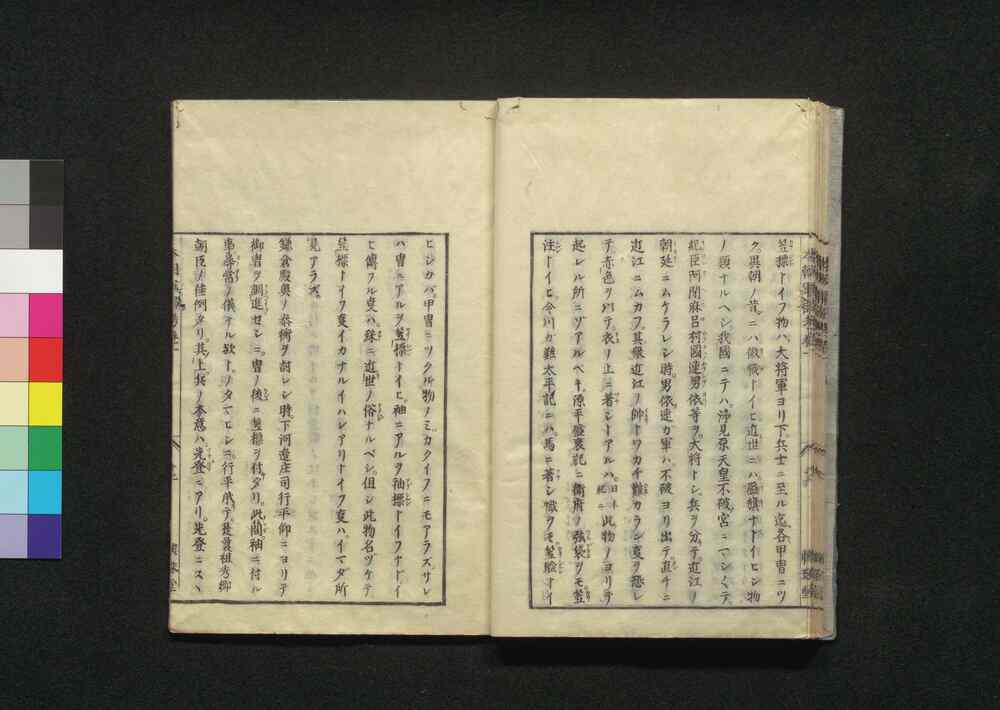 笠標トイフ物ハ、大将軍ヨリ下、兵士ニ至ル迄、各甲冑ニツ
ク。異朝ノ昔ニハ徽幟トイヒ近世ニハ盔旗ナドイヒシ物
ノ類ナルヘシ、我國ニテハ、浄見原天皇不破宮ニマシ〱テ、
紀臣阿閇麻呂村國連男依等ヲ大将トシ、兵ヲ分テ、近江ノ
朝廷ニムケラレシ時、男依速カ軍ハ、不破ヨリ出テ、直チニ
近江ニムカフ、其衆近江ノ帥トワカチ難カラン叓ヲ恐レ
テ、赤色ヲ以テ衣ノ上ニ著シトアルハ、此物ノヨリテ
起レル所ニゾアルベキ、源平盛衰記ニ衝府ノ強袋ヲモ笠
注トイヒ今川カ難太平記ニハ、馬ニ著シ幟ヲモ笠驗トイ
ヒシカバ、甲冑ニツクル物ノミカクイフニモアラズ、サレ
ハ冑ニアルヲ笠標トイヒ、袖ニアルヲ袖標トイフナドイ
ヒ傳フル叓ハ、殊ニ近世ノ俗ナルベシ、但シ此物名ヅケテ
笠標トイフ叓イカナルイハレアリトイフ叓ハ、イマダ所
見アラズ、
鎌倉殿奥ノ泰衡ヲ討レシ時、下河邊庄司行平仰ニヨリテ
御冑ヲ調進セシニ、冑ノ後ニ笠標ヲ付タリ、此簡袖ニ付ル
事尋常ノ儀ナル歟ト、ノタマヒシニ、行平承テ、是曩祖秀郷
朝臣ノ佳例タリ、其上兵ノ本意ハ先登ニアリ、先登ニスヽ